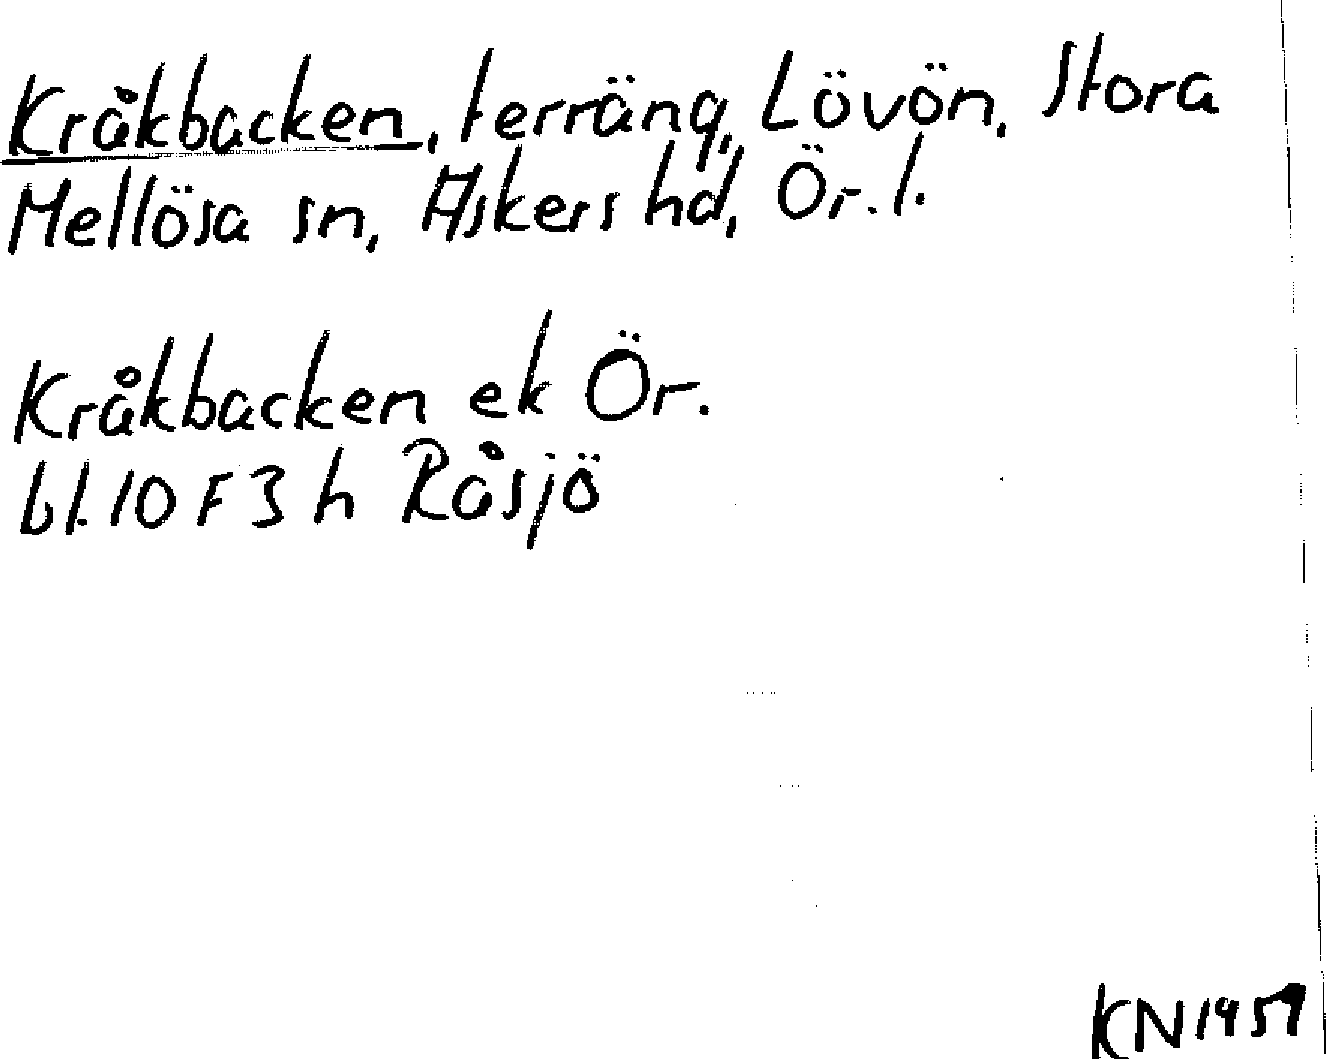 Kråkbacken, terräng, Lövön, Stora
Mellösa sn, Askers hd, Ör. l.
Kråkbacken ek Ör.
bl. 10 F 3 h Råsjö
KN 1957